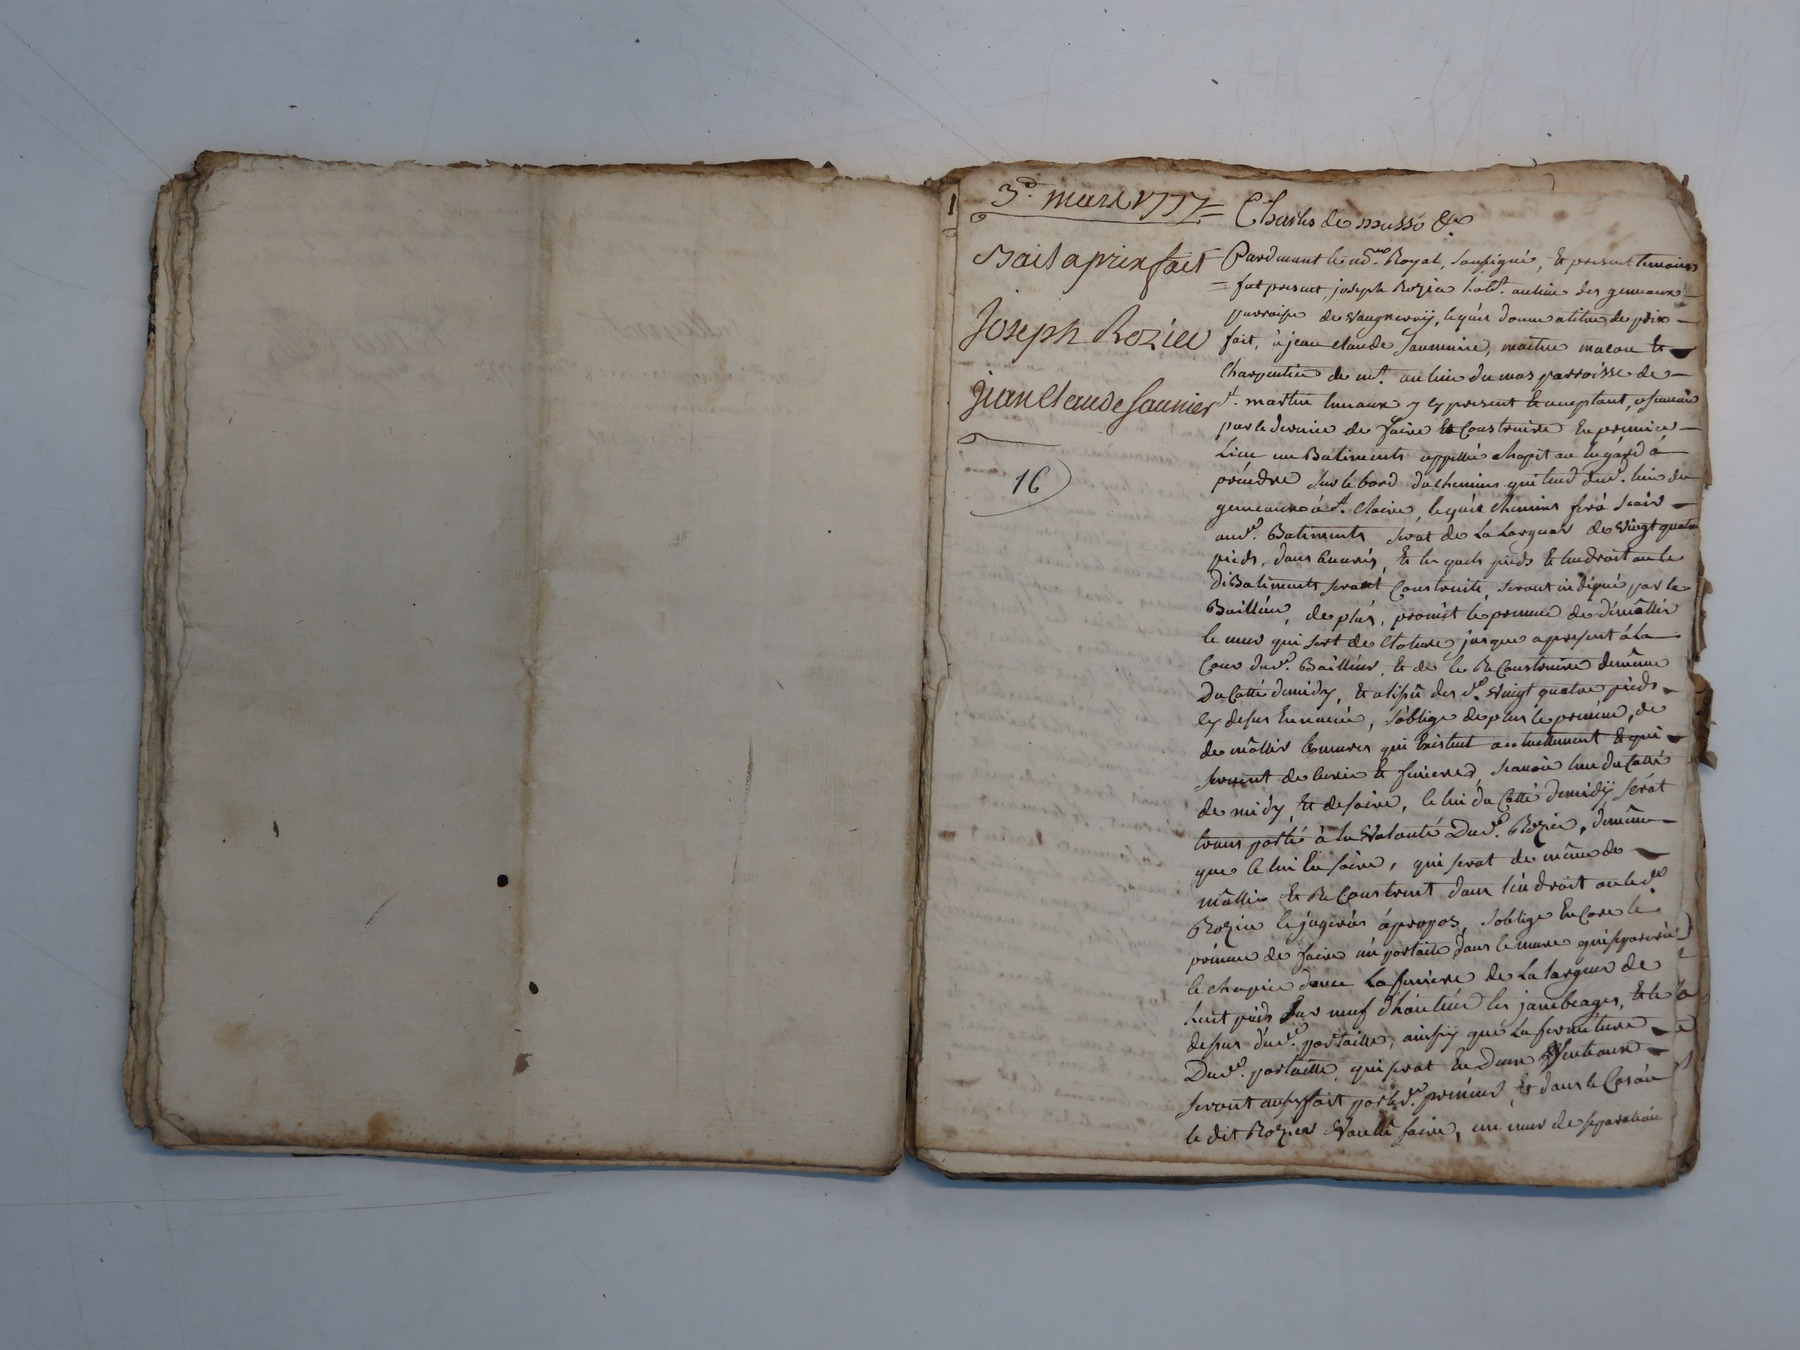 3.e mars 1777=
Bail a prix fait
Joseph Rozier
jean Claude Saunier
16
Charles de masso &.a
Pardevant le no.re Royal, soussigné, Et present temoins
= fut present, joseph Rozier hab.t au lieu des gemeaux
parroisse de Vaugneray, lequel donne a titre de prix
fait, à jean claude Saunnier, maitre macon Et
Charpentier de m.t au lieu du mas parroisse de
S.t martin present Et acceptant, a scavoir
par le dernier de faire Et Construire En premier
Lieu un Batiments appellé chapit au
prendre sur le bord du chemins qui tend dud. lieu de
gemeaux à S.t Claire, lequel chemins serà soir
aud. Batiments serat de La Largeur de Vingt quatre
pieds, dans Et les quels pieds Et Lendroit ou le
dit Batiments seront Construits, seront indiqué par le
Bailleur, de plus, promet le preneur de démollir
le mur qui sert de Cloture jusque a present à La
Cour dud. Bailleur, Et de le ReConstruire de même
Du Cotté de midy, des d. Vingt quatre pieds
cy desus s'oblige de plus le preneur, de
de mollir les mures qui Existent actuellement Et qui
servent de Et scavoir lun du Cotté
de midy, Et de soire, le lui du Cotté de midÿ serat
transporté à la Volonté Dud. Rozier, de même
que le lui En soire, qui serat de même de
mollis Et ReConstruit dans lendroit ou led.
Rozier le jugeràs àpropos, s'oblige En Core le
preneur de faire un portaille dans le mure qui separera
le chapit davec La de La largeur de
huit pieds sur neuf dhauteur les jambeages, Et le
desus dud. portaille, ainsÿ que La fermeture
Dud. portaille, qui serat En Deux Venteaux
seront aussy fait par led. preneur, Et dans le Cas ou
le dit Rozier Veuille faire, un mur de separation